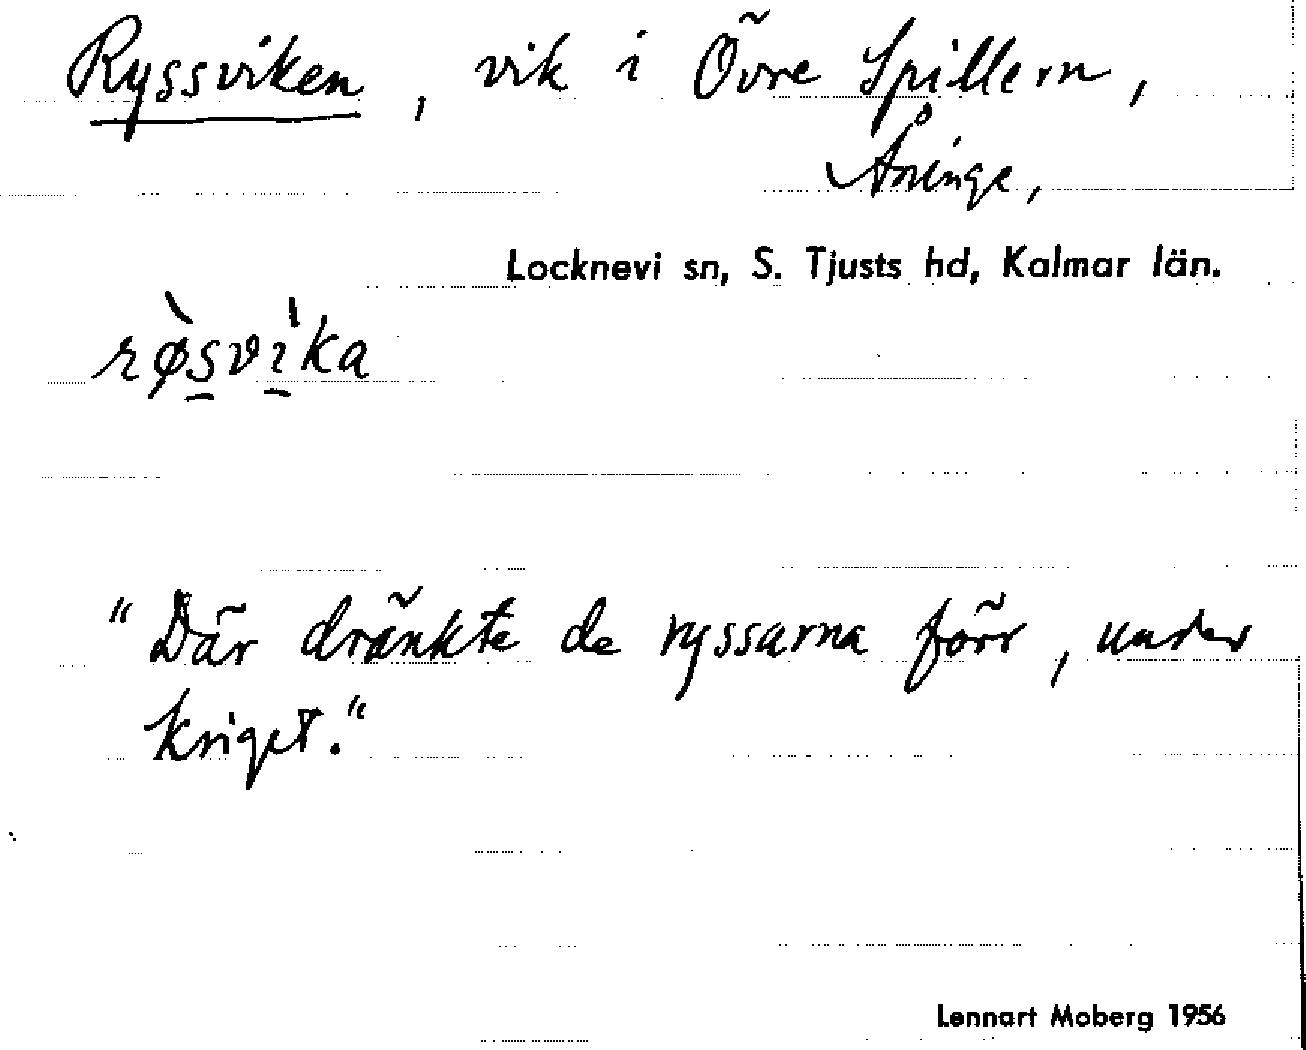 Ryssviken, vik i Övre Spillern,
Åninge,
Locknevi sn, S. Tjusts hd, Kalmar län.
rø̀s̱vi̱̍ka
"Där dränkte de ryssarna förr, under
kriget."
Lennart Moberg 1956